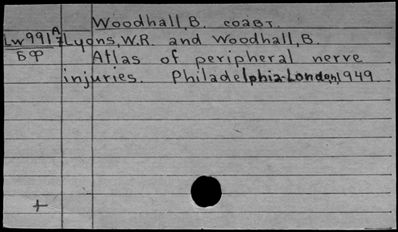 Woodhall, B. соавт.
Lw991 A/7 Lyons, W.R. and Woodhall, B.
БФ Atlas of peripheral nerve
injuries. Philadelphia-London, 1949
+